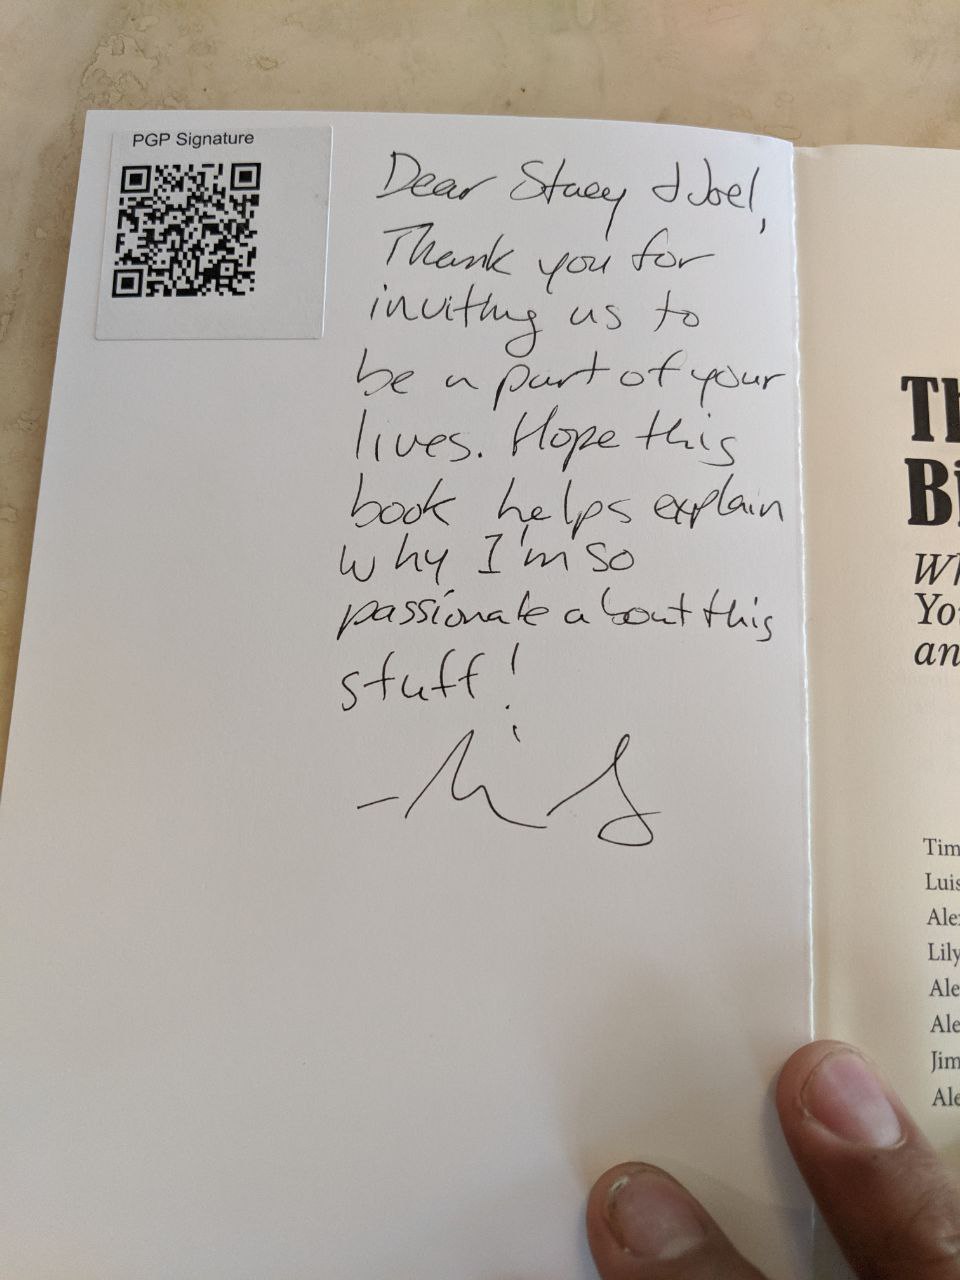 PGP Signature
Dear Stacy & Joel,
Thank you for
inviting us to
be a part of your
lives. Hope this
book helps explain
why I'm so
passionate about this
stuff!
Th
Bi
Wh
You
an
Tim
Luis
Alex
Lily
Ale
Ale
Jim
Ale